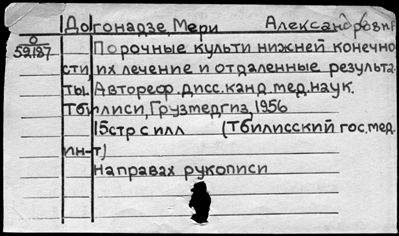 Догонадзе, Мери Александровна
О
59187
Порочные культи нижней конечно
сти, их лечение и отдаленные результа-
ты. Автореф. дисс. канд. мед. наук.
Тбилиси, Грузмедгиз, 1956
15 стр с илл (Тбилисский гос. мед.
ин-т)
На правах рукописи